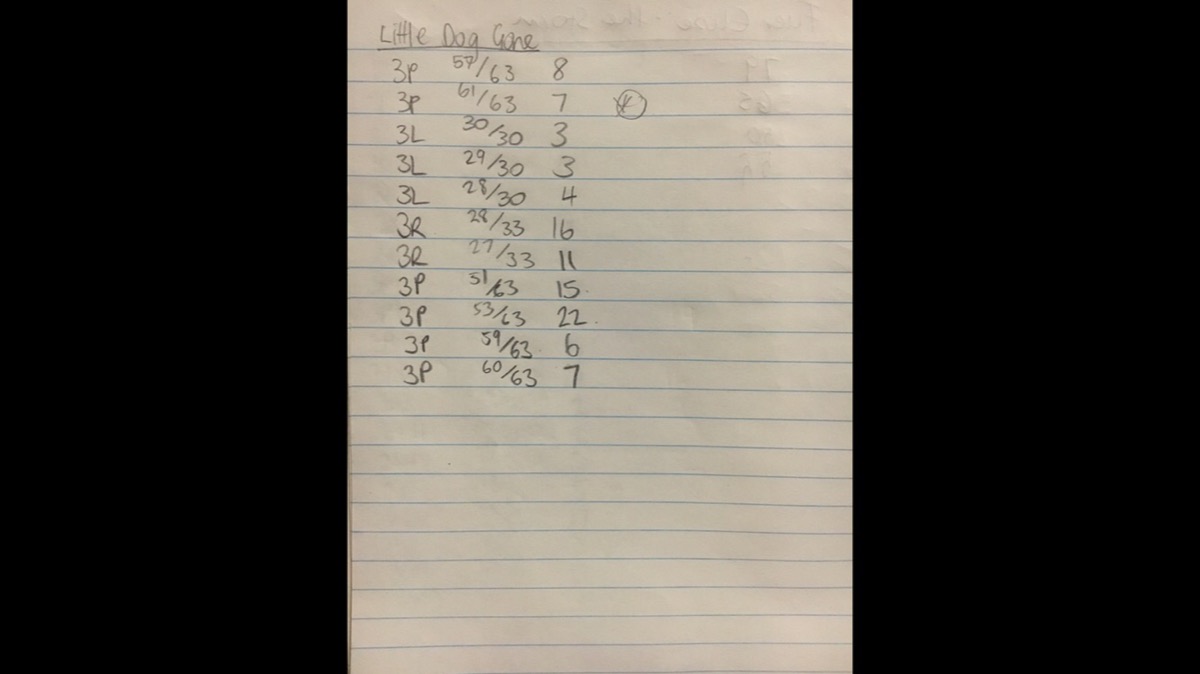 Little Dog Gone
3P 57/63 8
3P 61/63 7 *
3L 30/30 3
3L 29/30 3
3L 28/30 4
3R 28/33 16
3R 27/33 11
3P 51/63 15.
3P 53/63 22.
3P 59/63. 6
3P 60/63 7